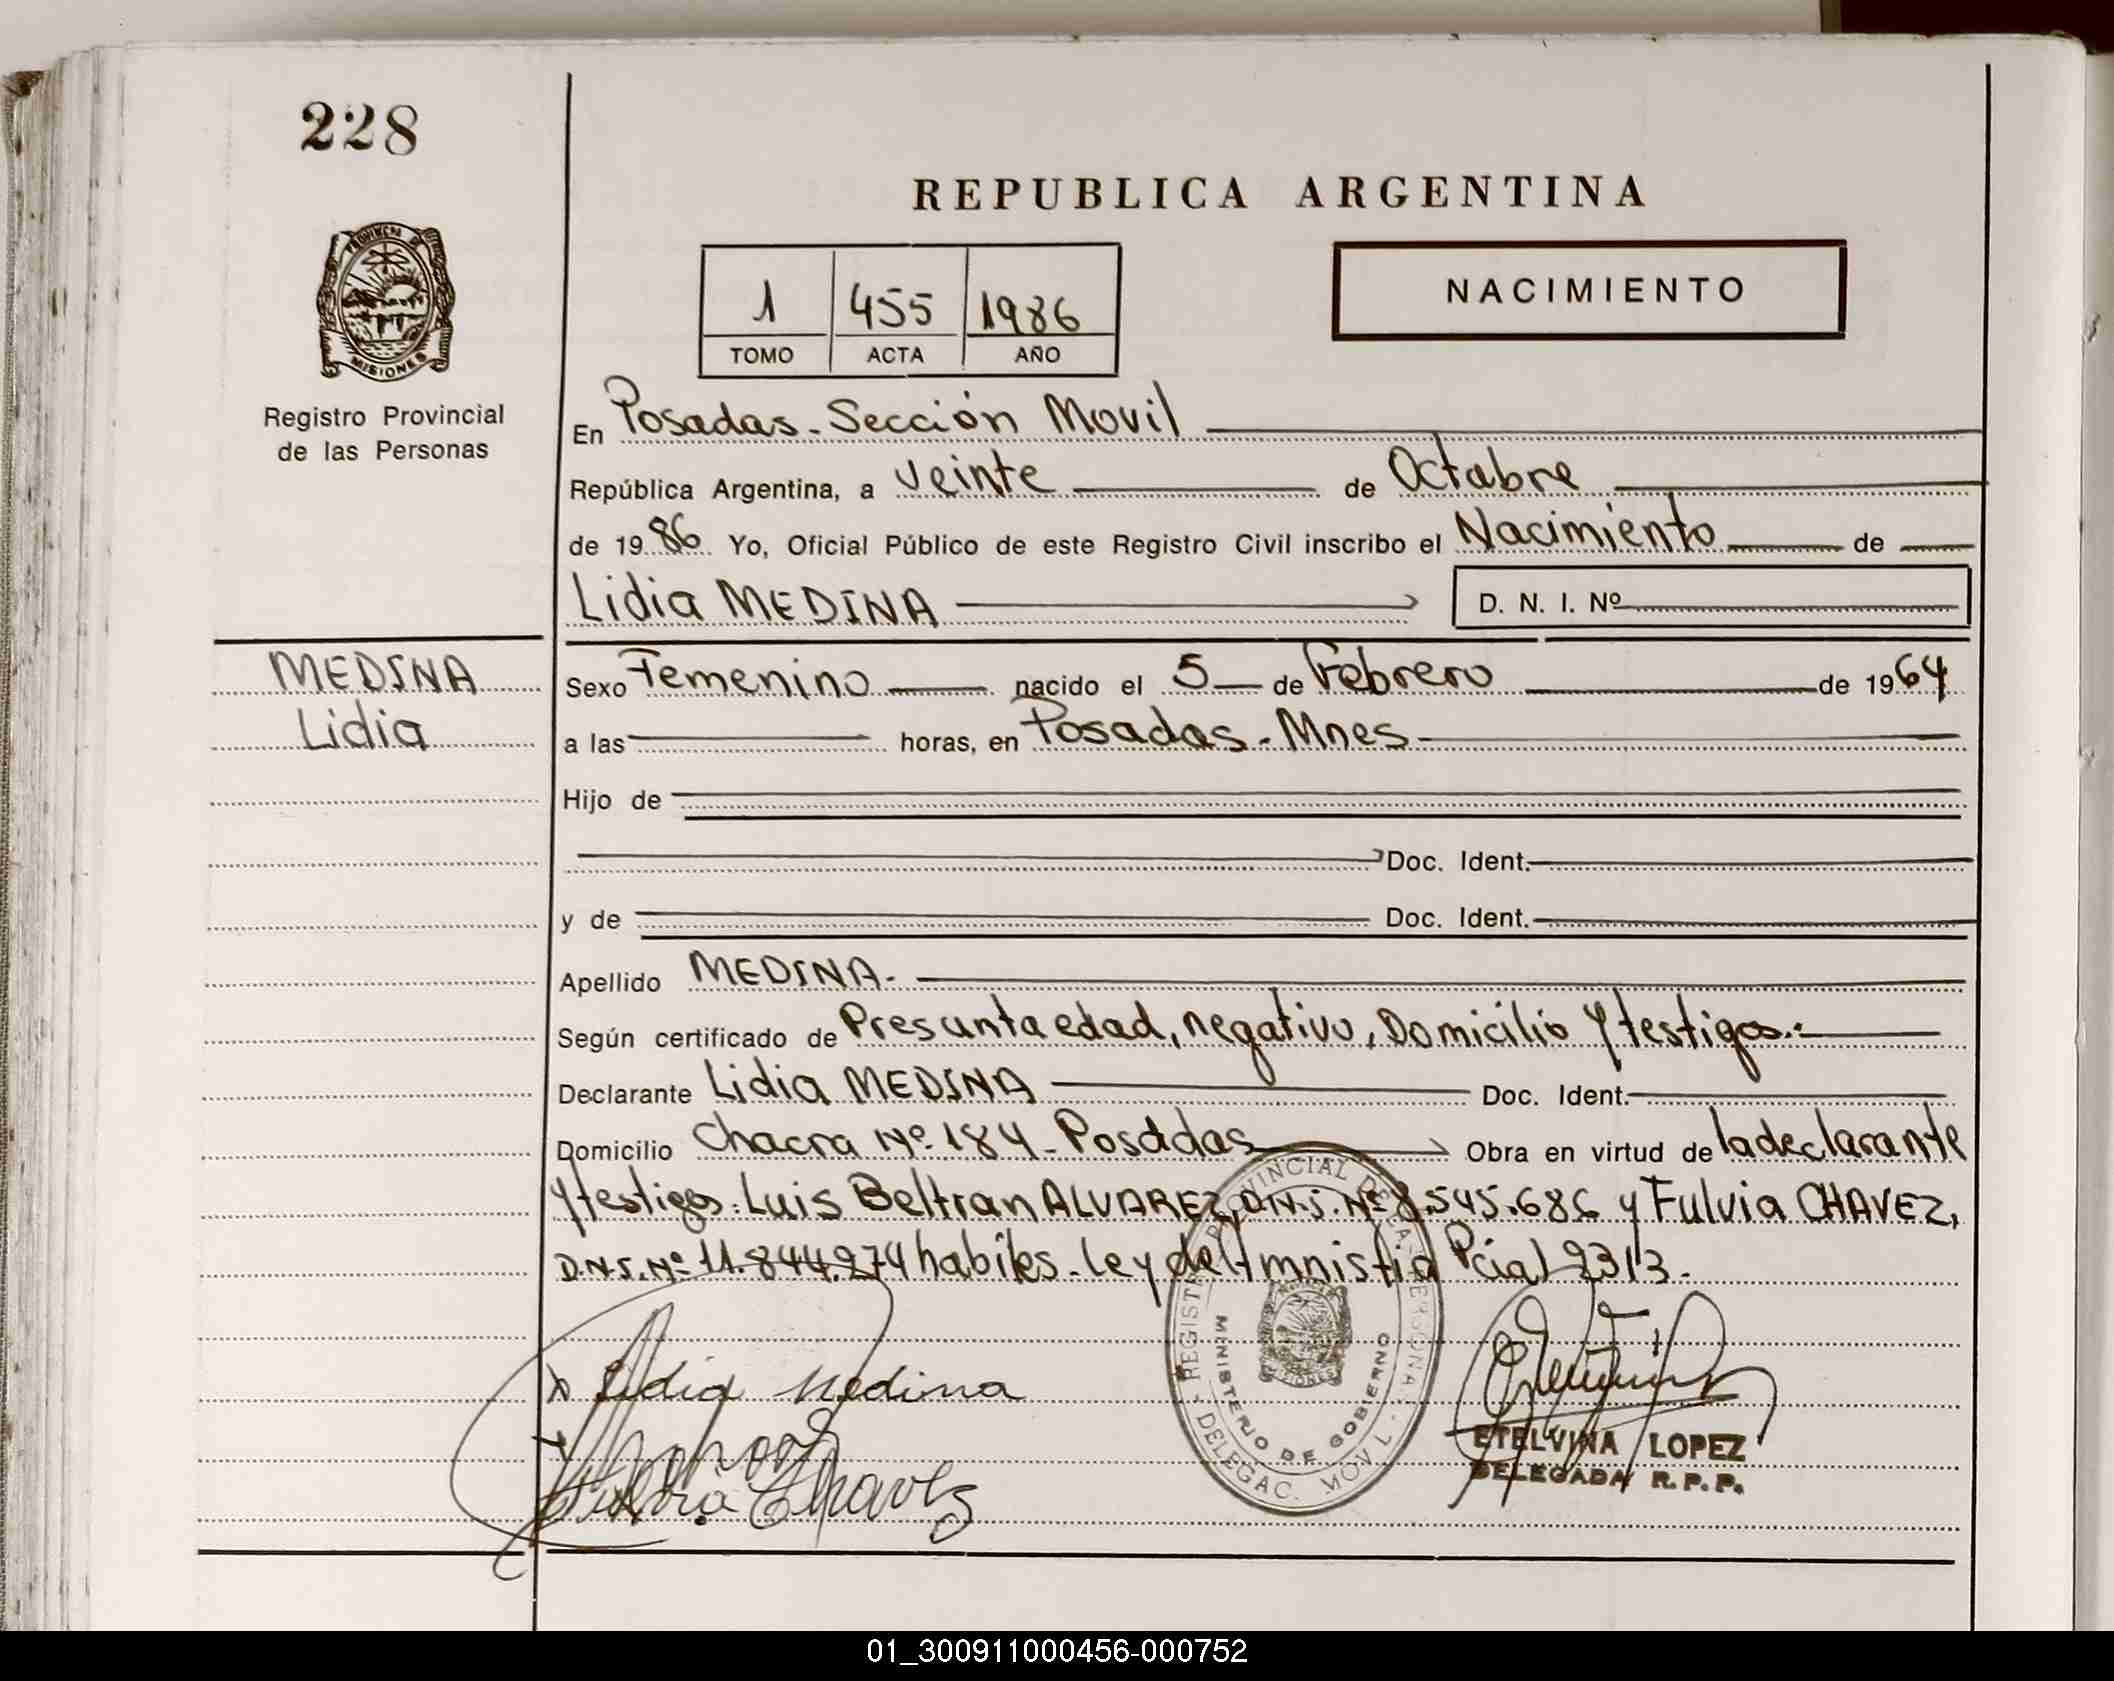 228
REPUBLICA ARGENTINA
NACIMIENTO
1 455 1986
TOMO ACTA AÑO
PROVINCIA DE
MISIONES
Registro Provincial
de las Personas
En Posadas - Sección Movil
República Argentina, a veinte de Octubre
de 1986 Yo, Oficial Público de este Registro Civil inscribo el Nacimiento de
Lidia MEDINA D. N. I. Nº
MEDINA
Lidia
Sexo Femenino nacido el 5 de Febrero de 1964
a las horas, en Posadas - Mnes
Hijo de
Doc. Ident.
y de Doc. Ident.
Apellido MEDINA.
Según certificado de Presunta edad, negativo, Domicilio y testigos.-
Declarante Lidia MEDINA Doc. Ident.
Domicilio Chacra Nº 184 - Posadas Obra en virtud de la declarante
y testigos: Luis Beltran ALVAREZ, D.N.I. Nº 8.545.686 y Fulvia CHAVEZ,
D.N.I. Nº 11.844.274 habiles. Ley de Amnistia Pcial 2313.
REGISTRO PROVINCIAL DE LAS PERSONAS
MINISTERIO DE GOBIERNO
MISIONES
DELEGAC. MOVIL
x Lidia Medina
Fulvia Chavez
ETELVINA LOPEZ
DELEGADA R.P.P.
01_300911000456-000752